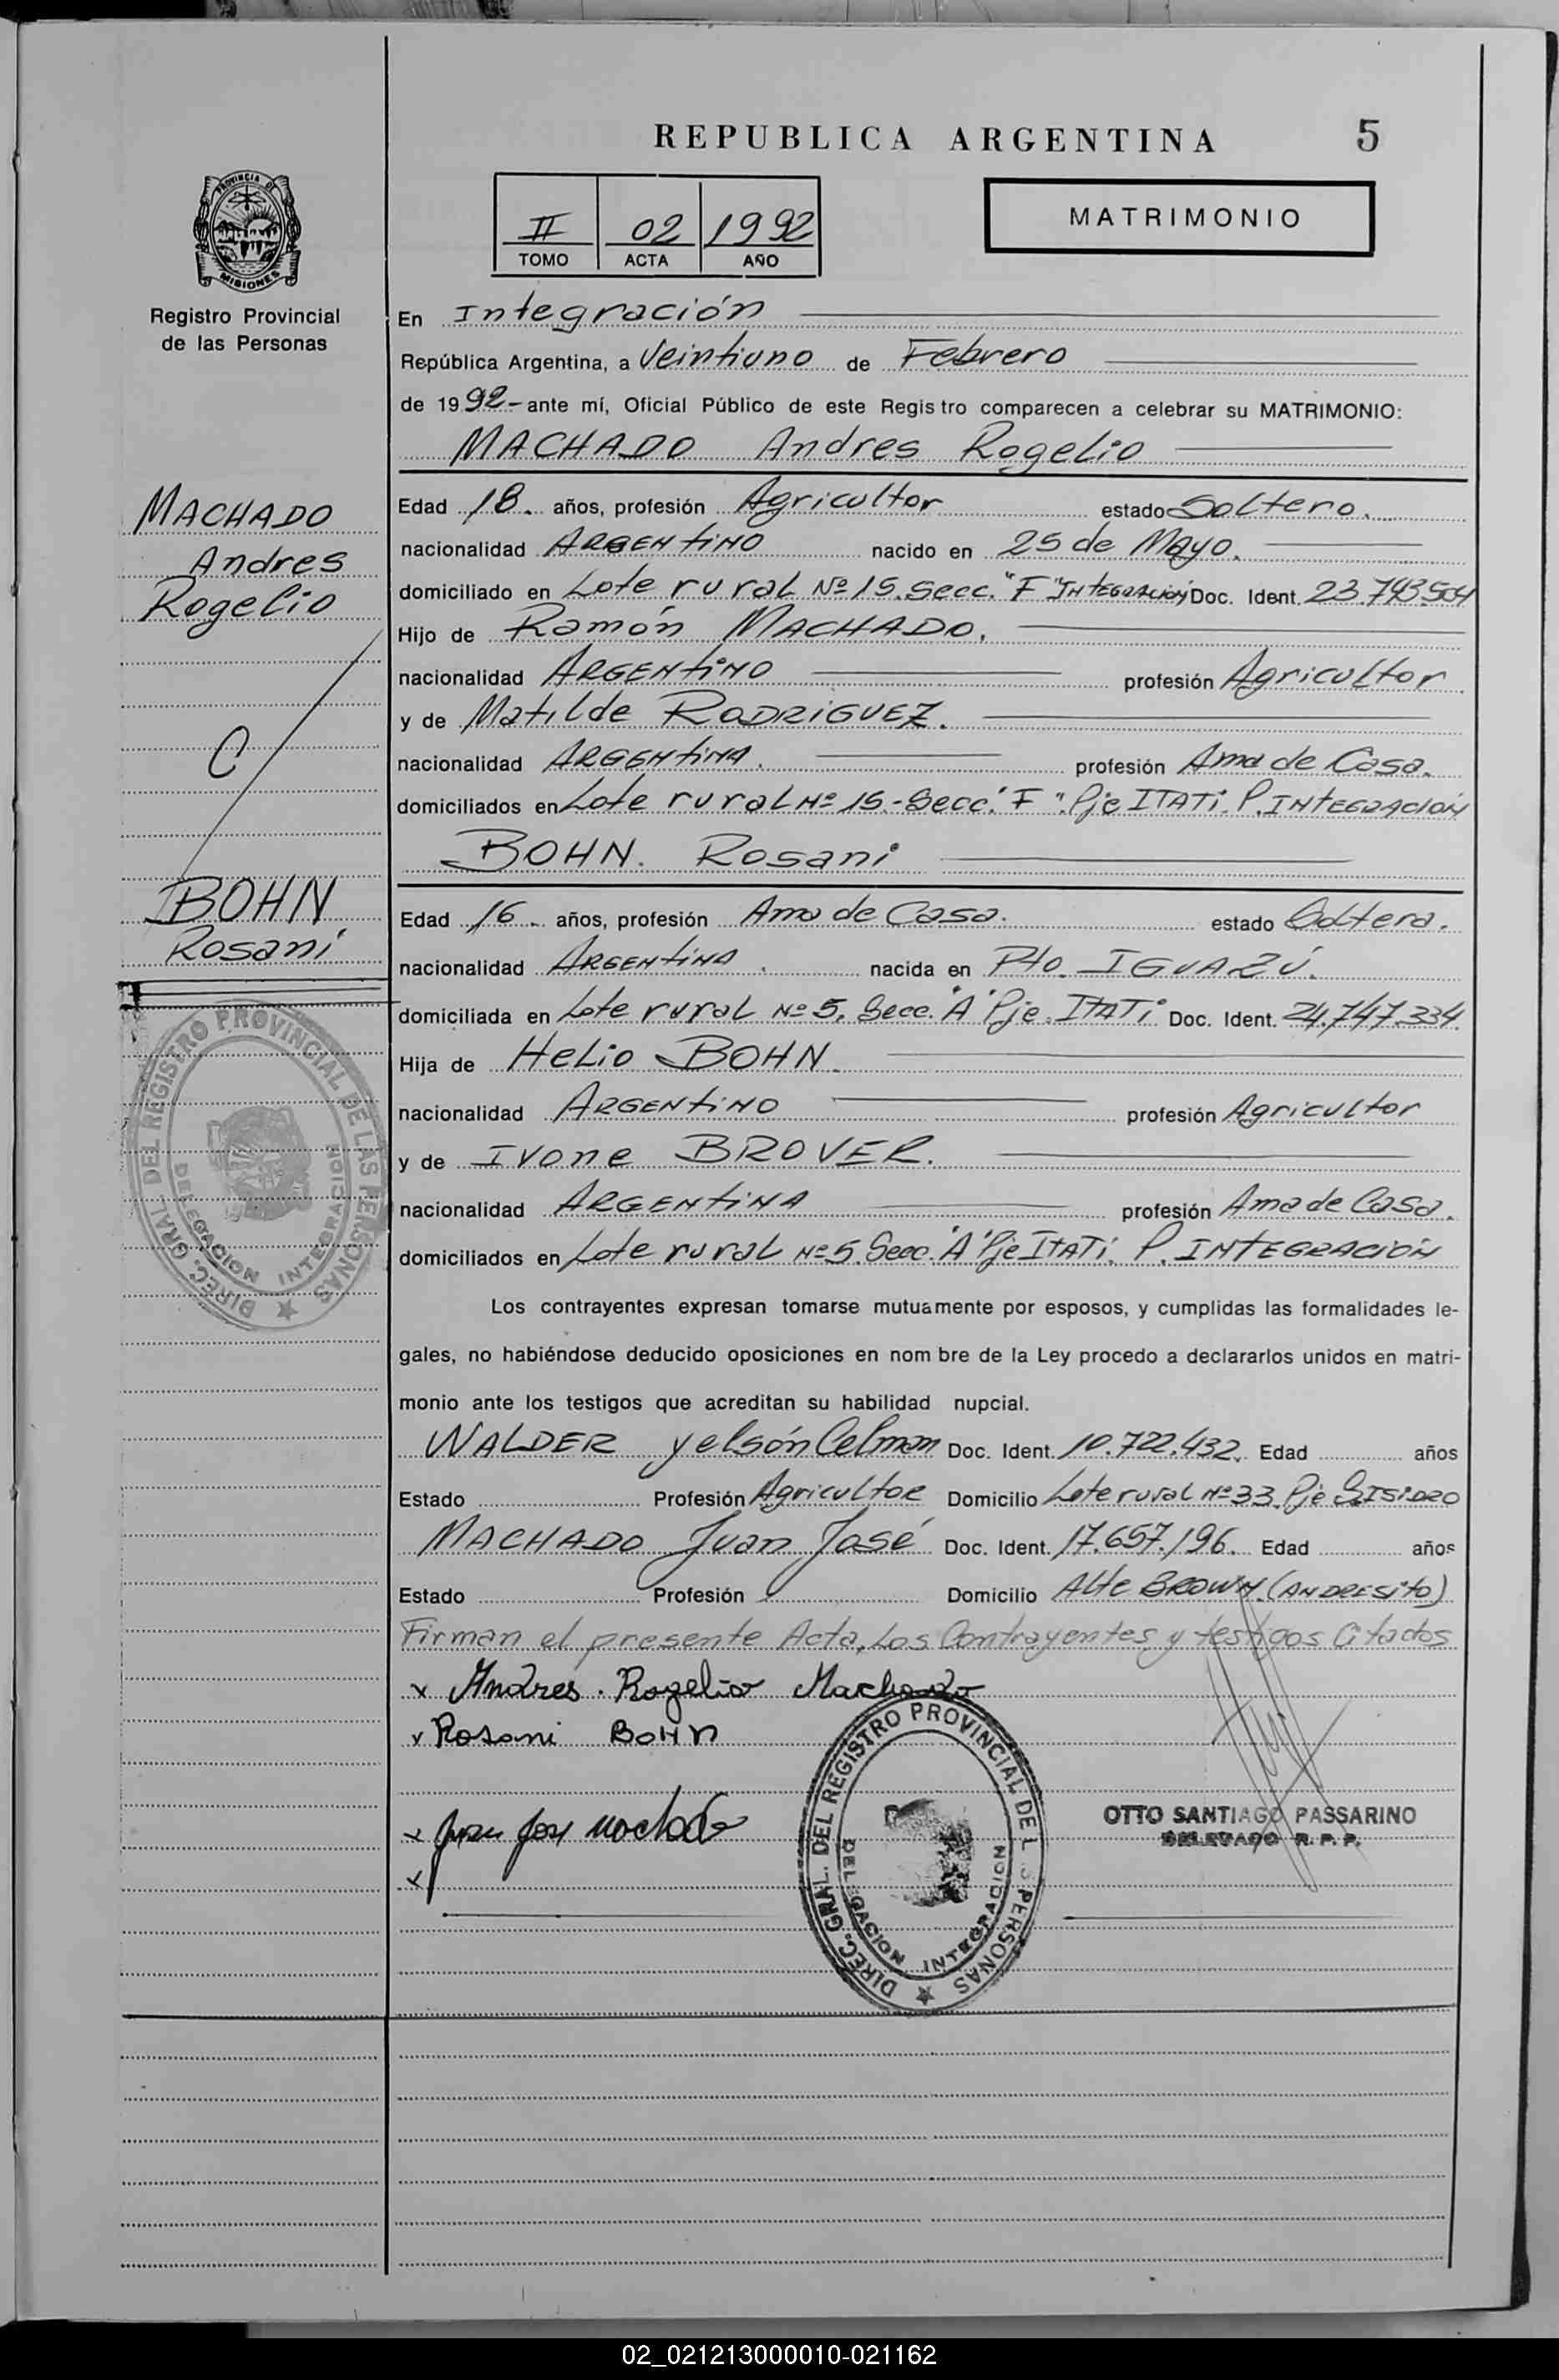 REPUBLICA ARGENTINA 5
II 02 1992
TOMO ACTA AÑO
MATRIMONIO
PROVINCIA DE MISIONES
Registro Provincial
de las Personas
En Integración
República Argentina, a Veintiuno de Febrero
de 1992- ante mí, Oficial Público de este Registro comparecen a celebrar su MATRIMONIO:
MACHADO Andres Rogelio
MACHADO
Andres
Rogelio
C
BOHN
Rosani
Edad 18. años, profesión Agricultor estado Soltero.
nacionalidad ARGENtiNO nacido en 25 de Mayo.
domiciliado en Lote rural Nº 15. Secc. "F" INtEGRACIÓN Doc. Ident. 23.793.504
Hijo de Ramón MACHADO.
nacionalidad ARGENtiNO profesión Agricultor
y de Matilde RODRiGUEZ.
nacionalidad ARGENtiNA. profesión Ama de Casa.
domiciliados en Lote rural Nº 15.- Secc. "F". Pje ITATi. P. INtEGRACIÓN
BOHN. Rosani
Edad 16. años, profesión Ama de Casa. estado Soltera.
nacionalidad ARGENtiNA. nacida en Pto. IGUAZÚ.
domiciliada en Lote rural Nº 5. Secc. "A" Pje. ITATi Doc. Ident. 24.747.334
Hija de HeLio BOHN.
nacionalidad ARGENtiNO profesión Agricultor
y de Ivone BROVER.
nacionalidad ARGENtiNA profesión Ama de Casa.
domiciliados en Lote rural Nº 5. Secc. "A" Pje ItATi. P. INtEGRACIÓN
Los contrayentes expresan tomarse mutuamente por esposos, y cumplidas las formalidades le-
gales, no habiéndose deducido oposiciones en nom bre de la Ley procedo a declararlos unidos en matri-
monio ante los testigos que acreditan su habilidad nupcial.
WALDER Yelsón Celman Doc. Ident. 10.722.432. Edad años
Estado Profesión Agricultor Domicilio Lote rural Nº 33. Pje S. ISiDRO
MACHADO Juan José Doc. Ident. 17.657.196. Edad años
Estado Profesión Domicilio Alte BROWN. (ANDRESito)
Firman el presente Acta, Los Contrayentes y testigos Citados
x Andres. Rogelio Machado
x Rosani BOHN
x Juan Jose Machado
x
OTTO SANTIAGO PASSARINO
DELEGADO R. P. P.
DIREC. GRAL. DEL REGISTRO PROVINCIAL DE LAS PERSONAS
DELEGACION INTEGRACION
DIREC. GRAL. DEL REGISTRO PROVINCIAL DE LAS PERSONAS
DELEGACION INTEGRACION
02_021213000010-021162